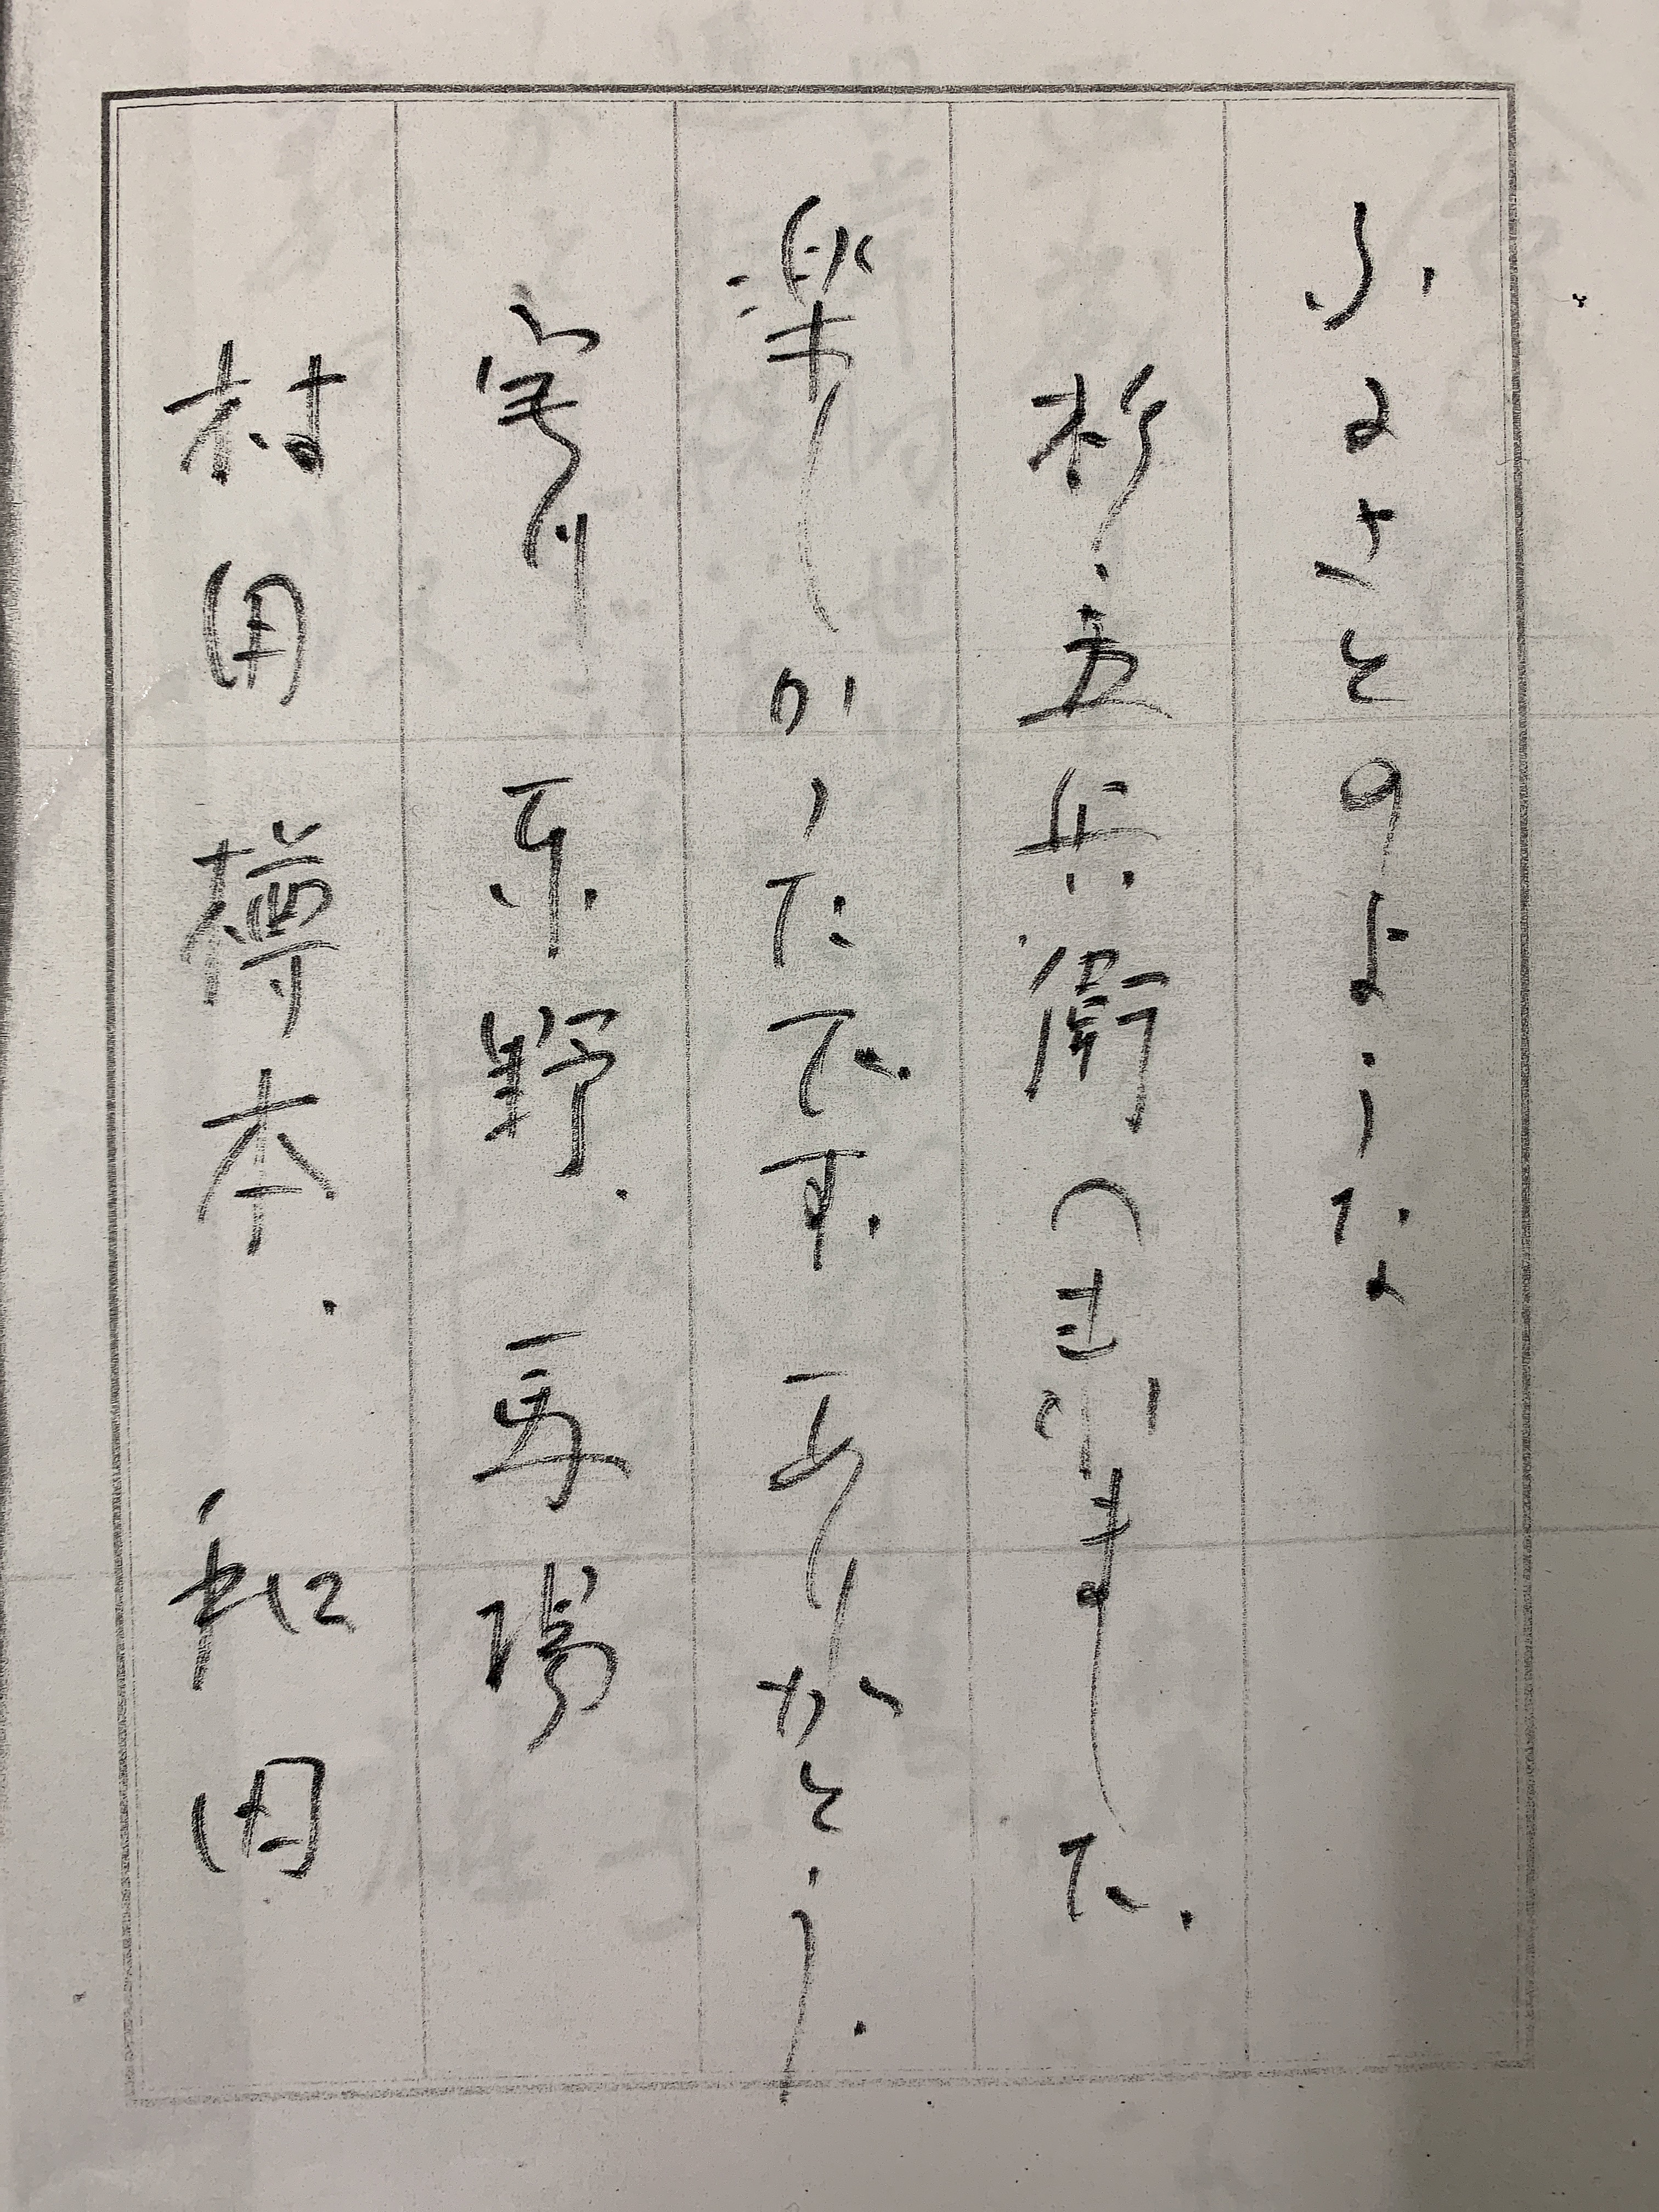 ふるさとのような
杉・五兵衛へ ました。
楽しかったです ありがとう。
馬場
村田 樽本. 和田